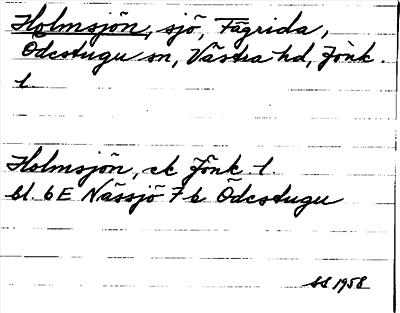 Holmsjön, sjö, Fagrida,
Ödestugu sn, Västra hd, Jönk.
l.
Holmsjön, ek Jönk. l.
bl. 6E Nässjö 7 b Ödestugu
SS 1958